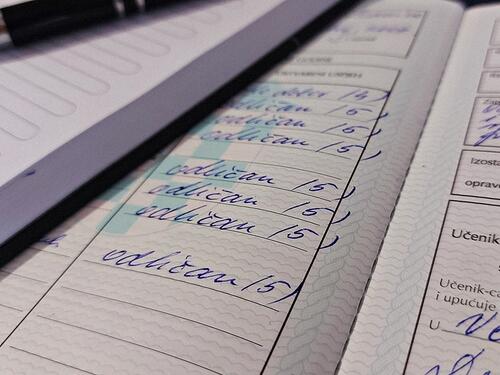 OSTVARENI USPJEH
dobar (4)
odličan (5)
odličan (5)
odličan (5)
odličan (5)
odličan (5)
odličan (5)
odličan (5)
Izosta
oprav
Učenik
Učenik-ca
i upućuje
U